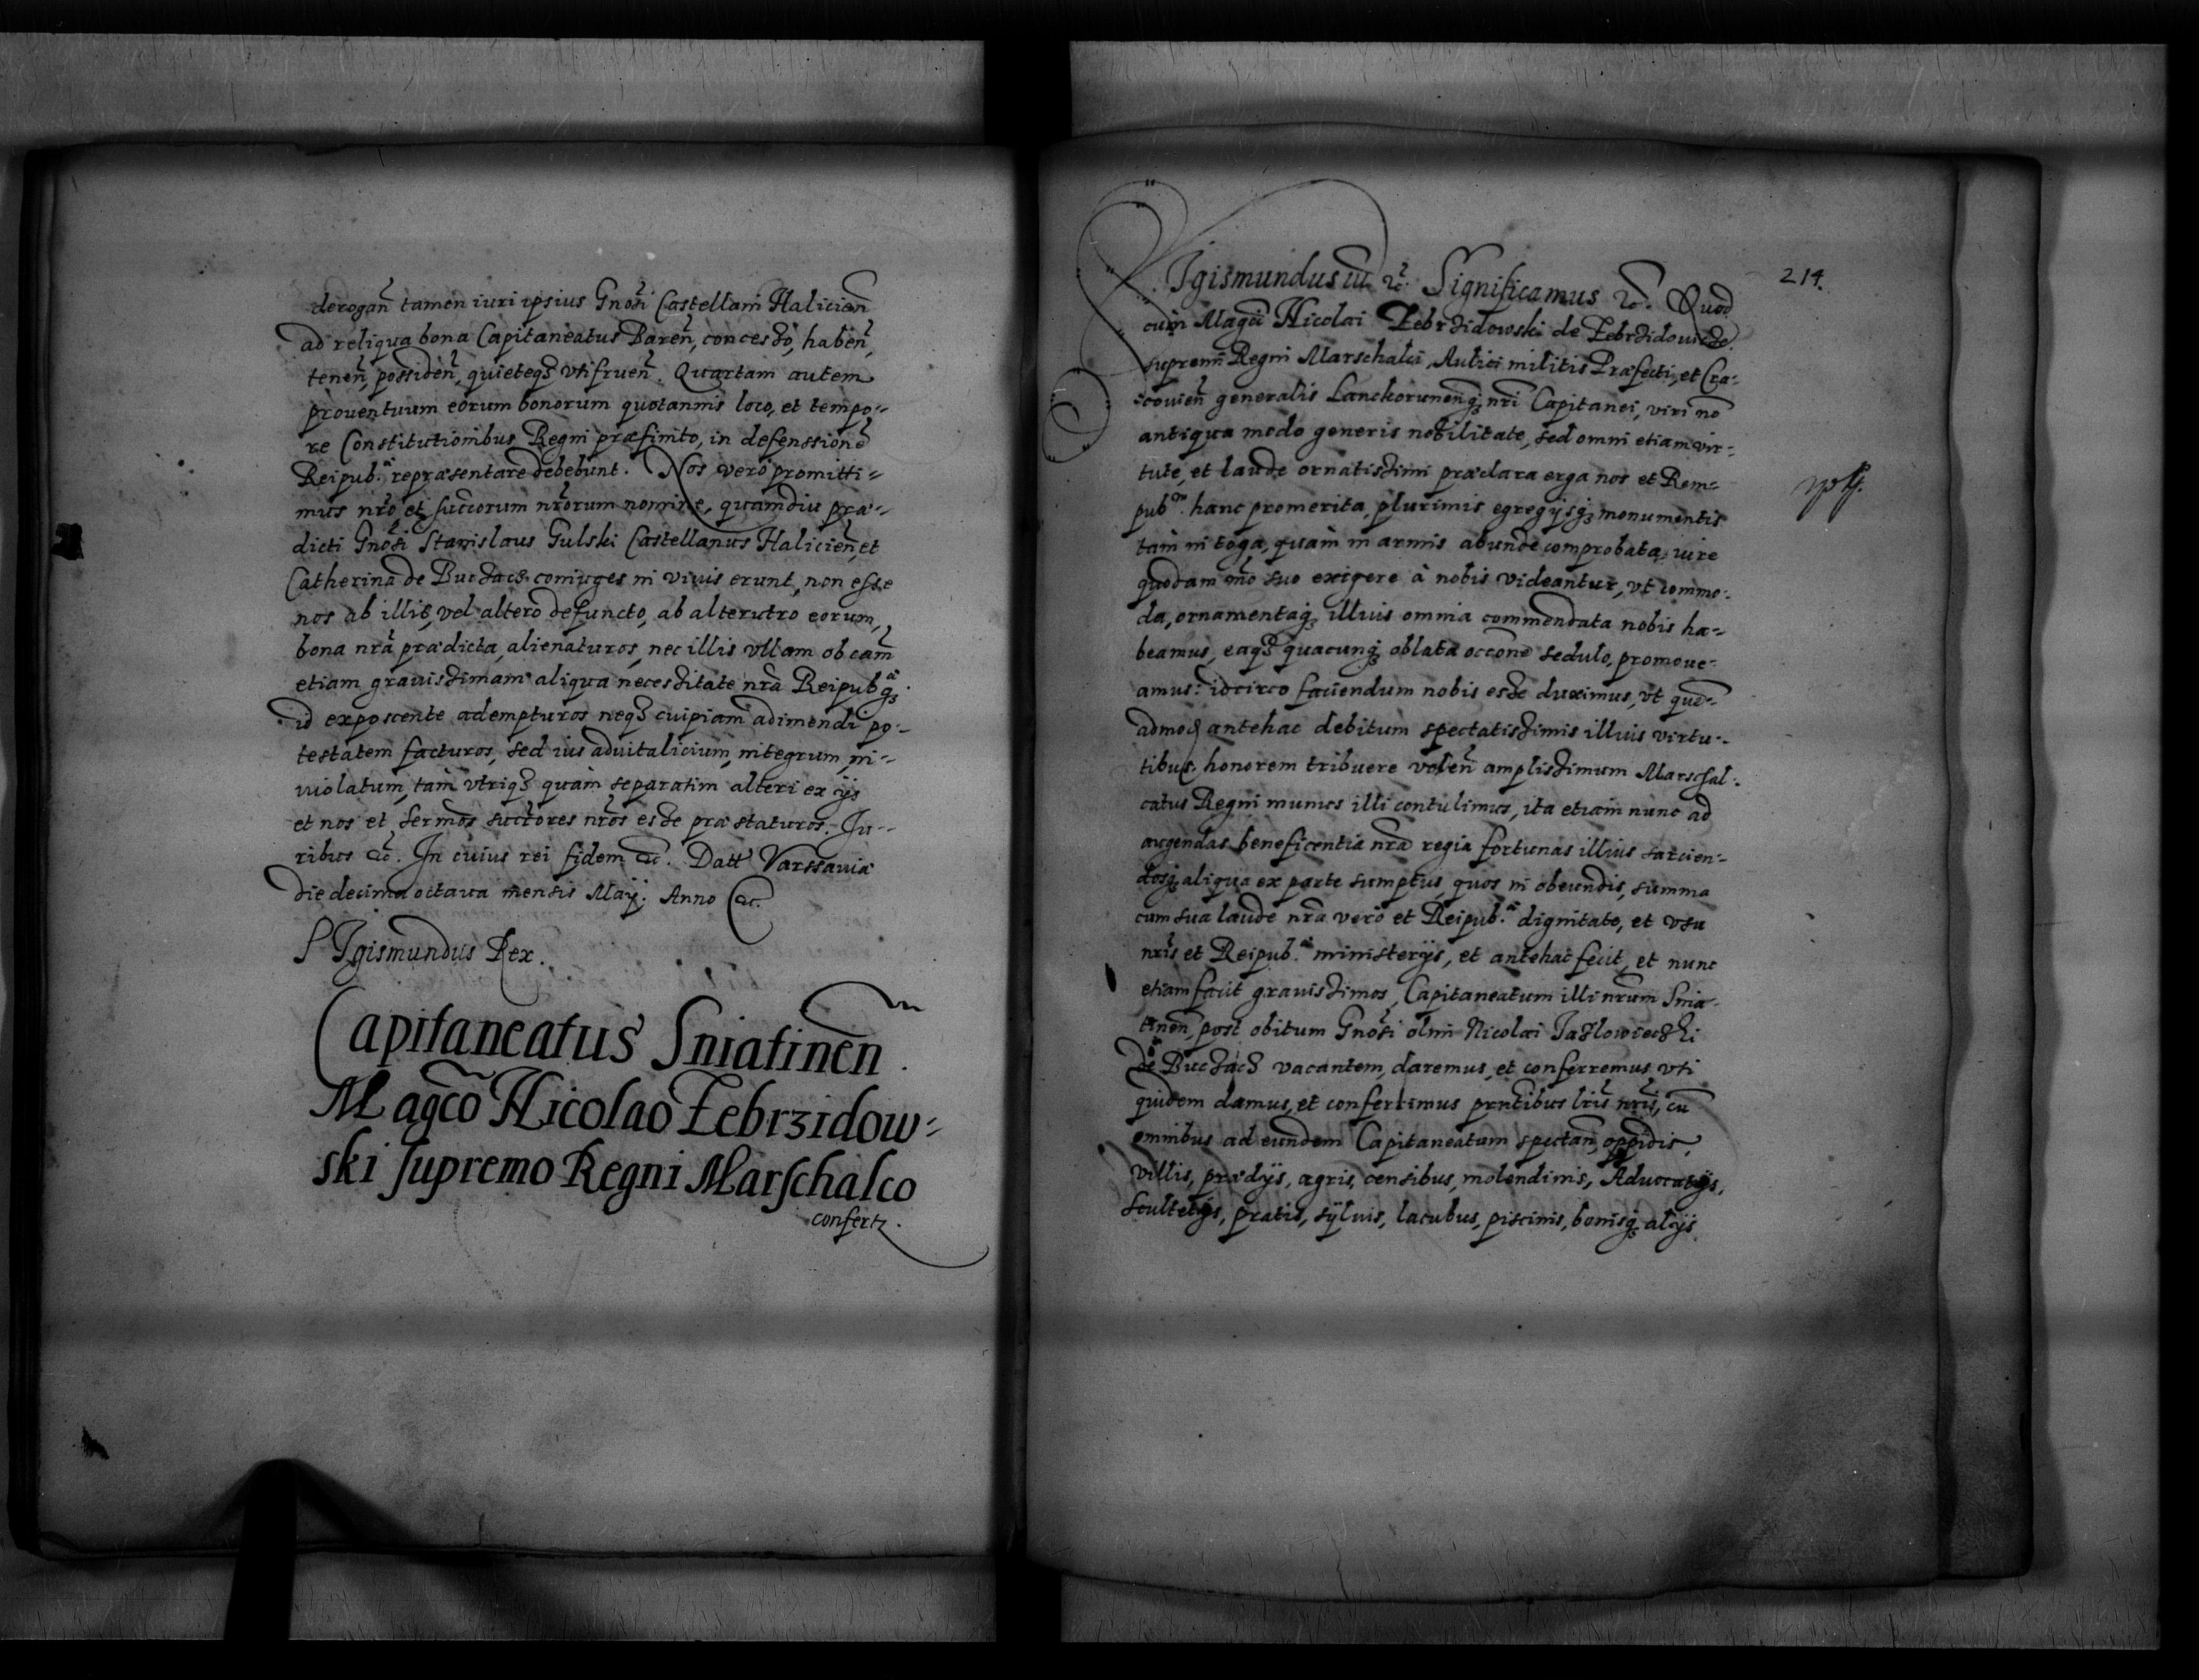 derogañ tamen iuri ipsius Gnosi Castellani Halicieñ
ad reliqua bona Capitaneatus Bareñ, concesso, habeñ,
teneñ, possideñ, quieteqȝ vtifrueñ. Quartam autem
prouentuum eorum bonorum quotannis loco, et tempo-
re Constitutionibus Regni præfinito, in defenssionē
Reipub.æ repræsentare debebunt. Nos vero promitti-
mus nro et succorum nrorum nomine, quamdiu præ-
dicti Gnosi Stanislaus Gulski Castellanus Halicieñ, et
Catherina de Buczacz coniuges in viuis erunt, non esse
nos ab illis, vel altero defuncto, ab alterutro eorum,
bona nra prædicta, alienaturos, nec illis vllam ob cam
etiam grauissimam aliqua necessitate nra Reipub.æqȝ
id exposcente adempturos neqȝ cuipiam adimendi po-
testatem facturos, sed ius aduitalicium, integrum, in-
uiolatum, tam vtriqȝ quàm separatim alteri ex ijs
et nos et sermos succtores nros esse præstaturos. Ju-
ribus &c. In cuius rei fidem &c. Datt Varssauiæ
die decima octaua mensis Maij. Anno &c.
SIgismundus Rex.
Capitaneatus Sniatineñ
Magco Nicolao Zebrzidow-
ski supremo Regni Marschalco
confertz.
214.
SIgismundus iii &c. Significamus &c. Quod
cum Magci Nicolai Zebrzidowski de Zebrzidowicze
supremi Regni Marschalci, Aulici militis Præfecti, et Cra-
couieñ generalis Lanckorunenqȝ nri Capitanei, viri no
antiqua modo generis nobilitate, sed omni etiam vir-
tute, et laude ornatissimi præclara erga nos et Rem-
pub.m hanc promerita, plurimis egregijsqȝ monumentis
tam in toga, quàm in armis abunde comprobata, iure
quodam mo suo exigere à nobis videantur, vt commo-
da, ornamentaqȝ illius omnia commendata nobis ha-
beamus, eaqȝ quacunqȝ oblata occone sedulo, promoue-
amus: idcirco faciendum nobis esse duximus, vt que-
admoḋ antehac debitum spectatissimis illius virtu-
tibus honorem tribuere voleñ amplissimum Marschal-
catus Regni munus illi contulimus, ita etiam nunc ad
augendas beneficentia nra regia fortunas illius sarcien-
dosqȝ aliqua ex parte sumptus, quos in obeundis, summa
cum sua laude nra vero et Reipub.æ dignitate, et vsu
nris et Reipub.æ ministerijs, et antehac fecit, et nunc
etiam facit grauissimos, Capitaneatum illi nrum Snia-
tineñ, post obitum Gnosi olim Nicolai Jazlowieczki
de Buczacz vacantem, daremus, et conferremus, vti
quidem damus, et conferrimus prntibus lris nris, cū
omnibus ad eundem Capitaneatum spectañ, oppidis,
villis, prædijs, agris, censibus, molendinis, Aduocatijs,
scultetijs, pratis, syluis, lacubus, piscinis, bonisqȝ alijs